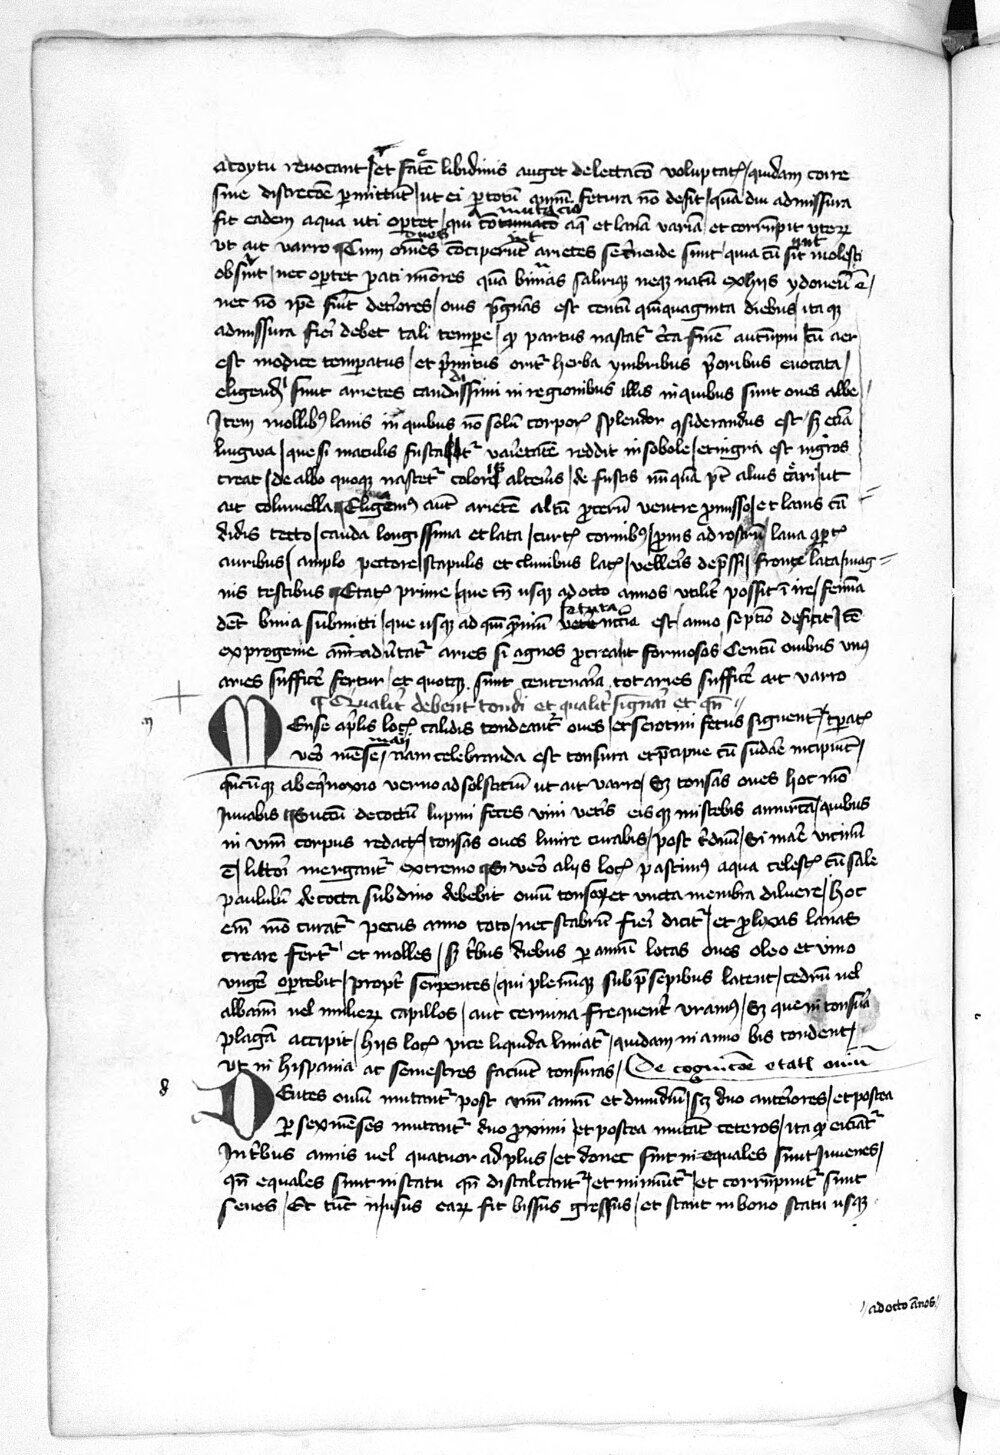 a coytu revocant / et satē libidinis auget delectacō voluptatꝭ / quidam coire
sine discrecōe ꝑmittunt / ut ei ꝑ totū annū fetura nō desit / quā diu admissura
fit eadem aqua uti oportet / qui aq̄ et lanā variā / et corrumpit uterū
ut ait varro Cum om̄es cōceperunt arietes secernende sunt / quia cū sint molesti
obsunt / nec oportet pati minores quā bimas saliri / neq; natū ex hiis ydoneū ē /
nec nō ipse sunt deteriores / ovis pregnans est centū quinquaginta diebus / ita q;
admissura fieri debet tali tempore / q̄ partus nascatr̄ circa finē autumpni / cū aer
est modice temperatus / et primitus oritr̄ herba ymbribus prioribus evocata /
eligendi sunt arietes candidissimi in regionibus illis in quibus sunt oves albe /
Item mollibus lanis in quibus nō solū corporꝭ splendor cōsiderandus est / sꝫ eciā
lingwa / que si maculis fuscatr̄ varietatē reddit in sobole / et nigra est nigros
creat / de albo quoq; nascetr̄ coloris alterius / de fuscis nunquā potest albus creari / ut
ait columella Eligemus autē arietē altū procerū ventre promisso / et lanis can
didis tecto / cauda longissima et lata / curtꝭ cornibus / pronis ad rostrū
auribus / amplo pectore / scapulis et clunibus latꝭ / velleris depressi / fronte lata / mag=
nis testibus Etatꝭ prime / que tn̄ usq; ad octo annos utilit̄ possit inire / femina
debet bima submitti / que usq; ad quinquennium fetata est / anno septimo deficit Itē
ex progenie animadvertatr̄ aries si agnos procreavit formosos Centū ovibus unus
aries sufficere fertur / et quotq; sunt centenaria tot aries sufficere ait varro
Qualit̄ debent tondi et qualit̄ signari et qn̄
MEnse aprilis locꝭ calidis tondeantr̄ oves / et serotini fetus signentr̄ / temperatꝭ
vero mense maii / nam celebranda est tonsura et precipue cū sudare incipiunt /
quincunq; ab equinoxio verno ad solsticiū ut ait varro / Sꝫ tonsas oves hoc mō
Juvabis Succū decoctū lupini feces vini vetꝭis eisq; mistebis amurcā / quibus
in unū corpus redactꝭ / tonsas oves linire curabis / post triduū / Si mare vicinū
ē / littori mergantr̄ extremo Si vero aliis locꝭ pascimus aqua celestꝭ cū sale
paululū decocta sub divo debebit oviū tonsarū et uncta membra diluere / Hoc
enī mō curatr̄ pecus anno toto / nec scabrū fieri dicitr̄ / et prolixas lanas
creare fertr̄ et molles / sꝫ tribus diebus per annū lotas oves oleo et vino
ungē oportebit / propt̄ serpentes / qui plerumq; sub presepibus latent / cedrū vel
albanū vel mulierū capillos / aut cervina frequenter uramus / Sꝫ que in tonsura
plagā accipit / hiis locꝭ pice liquida liniatr̄ / quidam in anno bis tondent /
ut in hispania ac semestres faciunt tonsuras / De cognicōe etatis oviū
DEntes oviū mutantr̄ post unū annū et dimidiū / sꝫ duo anteriores / et postea
ꝑ sex mēses mutantr̄ duo proximi / et postea mutantr̄ ceteros / ita q̄ eiciantr̄
In tribus annis vel quatuor ad plus / et donec sunt inequales sunt Juvenes /
qn̄ equales sunt in statu qn̄ discalcantr̄ / et minuuntr̄ / et corrumpuntr̄ sunt
senes / Et tunc iniusus earū fit bissus gressus / et stant in bono statu usq;
ad octo annos